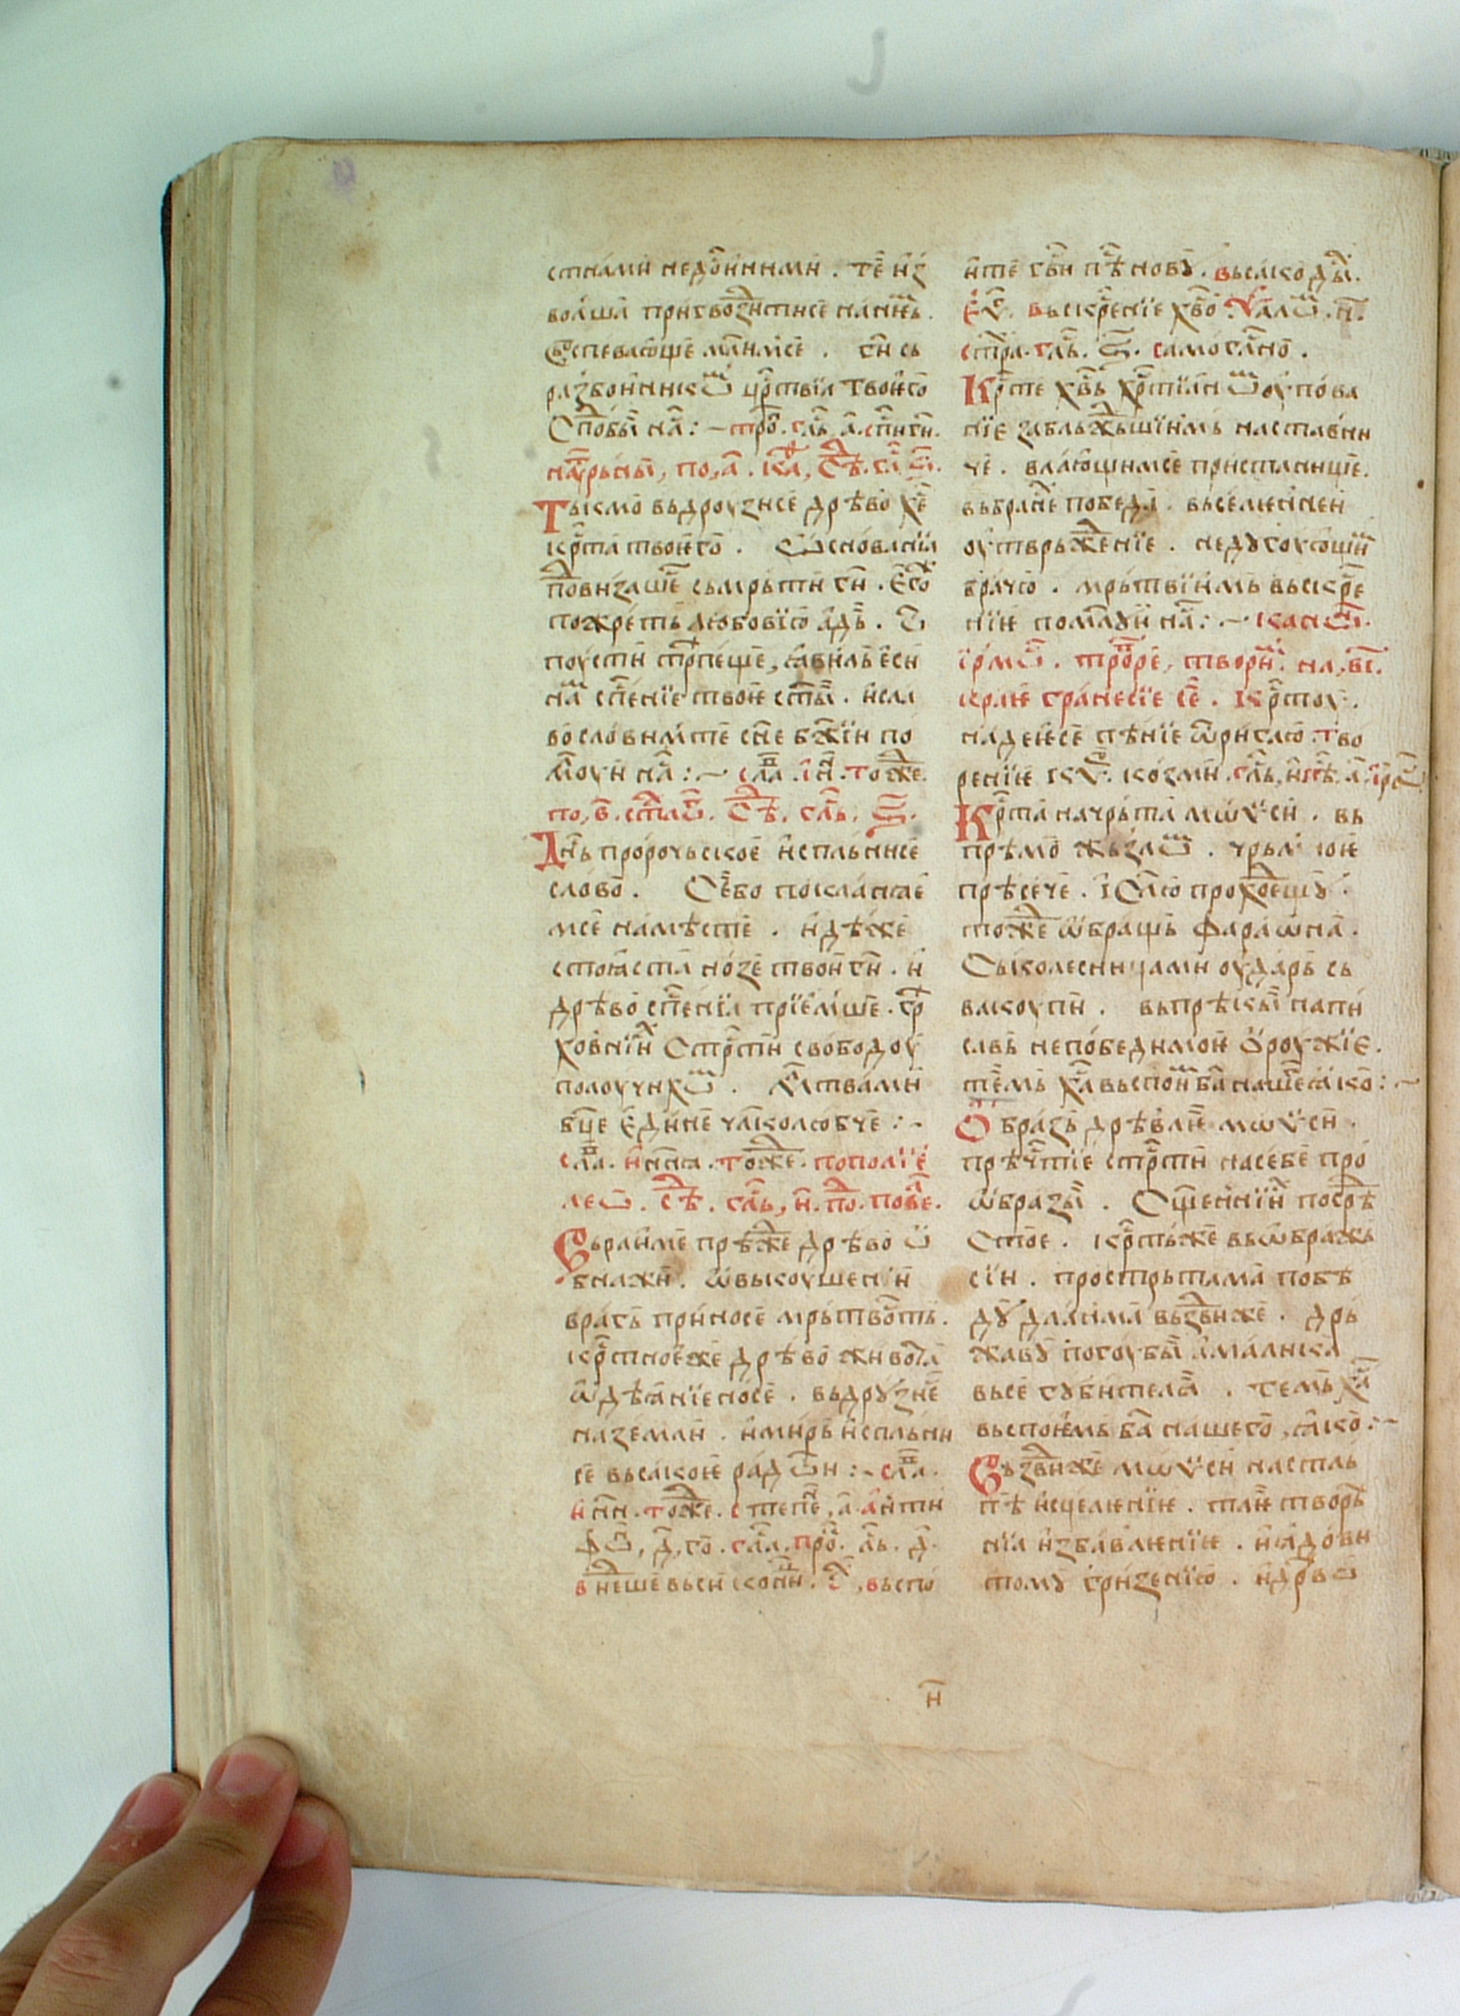 стнами недѹжними. те҄ из
волша пригвоздитисе на снь.
въспевающе млимсе. ги сь
разбоиникѡ црствиа твоѥго
сподобы на :~ тро. гль. а. спи ги.
по, а. ка, сѣ. гла
Тькмо вьдроузисе дрѣво хе
крста твоѥго. ѡснованиа
подвизаше сьмрьти ги. ѥго
пожреть любовїю адь.
поусти трпеще, ꙗвиль ѥси
нам спсенїе твоѥ сты. и сла
вословимте сне бжїи по
млоуи на :~ сла. и н. тоже.
по, в. стлѡ. сѣ. гль.
Днь пророчьское исплнисе
слово. Се бо покланꙗе
мсе на мѣсте. идѣже
стоꙗста нозе твои ги. и
дрѣво спсенїа прїемше. грѣ
ховнїи стрстїи свободоу
полоучихѡ. млтвами
бце ѥдине члколюбче :~
сла. и ниꙗ. тоже. по полиѥ
леѡ. сѣ. гль, и. по. пове.
Вь раи ме прѣжде дрѣво ѡ
бнажи. ѡ вькоушенїи
врагь приносе мрьтвость.
крстноеже дрѣво живота
ѡдѣанїе носе. вьдрузисе
на земли. и мирь исплни
се вьсакоѥ радости :~ сла.
и нн. тоже. степе, а. анти
фѡ, д, го. гла. про. гль. д.
видеше вьси конци. вьспо
ите гви пѣ нову. всако ды.
еѵ. вьскрсенїе хво. ѱалѡ. н.
стра. гль. самогласно.
Крсте хвь хрстїан оупова
нїе заблоуждьшїимь наставни
че. влающимсе пристанище.
вь бране победа. вьселѥннѥи
оутврьжденїе. недугоующи
врачю. мрьтвїимь вьскрсе
нїѥ помлуи на :~ кано.
їрмѡ. троре, твори на, вї.
краѥ гранесїе се. Крстоу.
надеѥсе пѣнїе ѡригаю. тво
ренїѥ кѵ. козми. гль, и. пѣ. а. їр
Крста начрьта мѡѵси. вь
прѣмо жьзлѡ. чрьмноѥ
прѣсече. ї҃ю прохоѥщу.
тоже ѡбращь фараѡна.
ськолесницами оударь сь
вькоупи. вьпрѣкы напи
савь непобедимоѥ ѡроужїе.
темь ха вьспоим ба нашего ꙗко :~
Образь дрѣвлѥ мѡѵси.
прѣчтїе стрсти на себе про
ѡбразы. Сщеннїи посрѣ
стое. крстьже вьѡбражь
сїи. прострьтама побѣ
ду дланма вьздвиже. дрь
жаву погоубы амалика
всегубителꙗ. темь ха
вьспоѥмь ба нашего, ꙗко :~
Вьздвиже мѡѵси на стль
пѣ исцелѥнїѥ. тлѥтворе
нїа избавлѥнїѥ. и ꙗдови
тому гризенїю. и дрѣвѡ
н